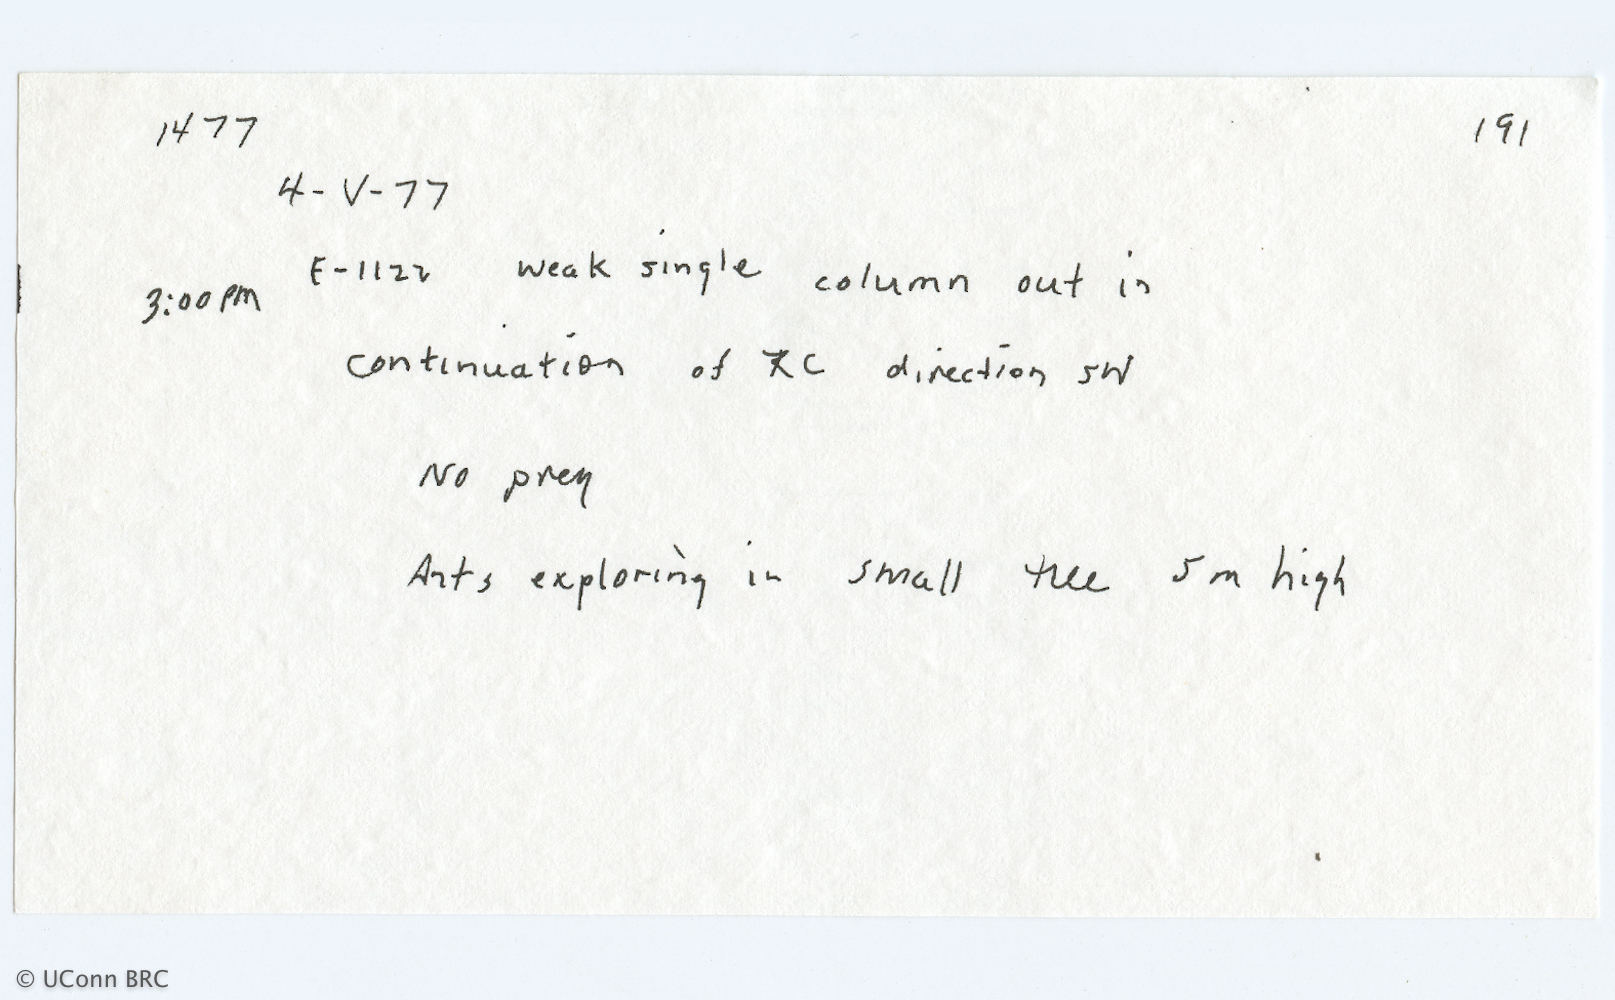 1477 191
4-V-77
3:00 PM E-1122 weak single column out in
continuation of RC direction SW
No prey
Ants exploring in small tree 5 m high
© UConn BRC